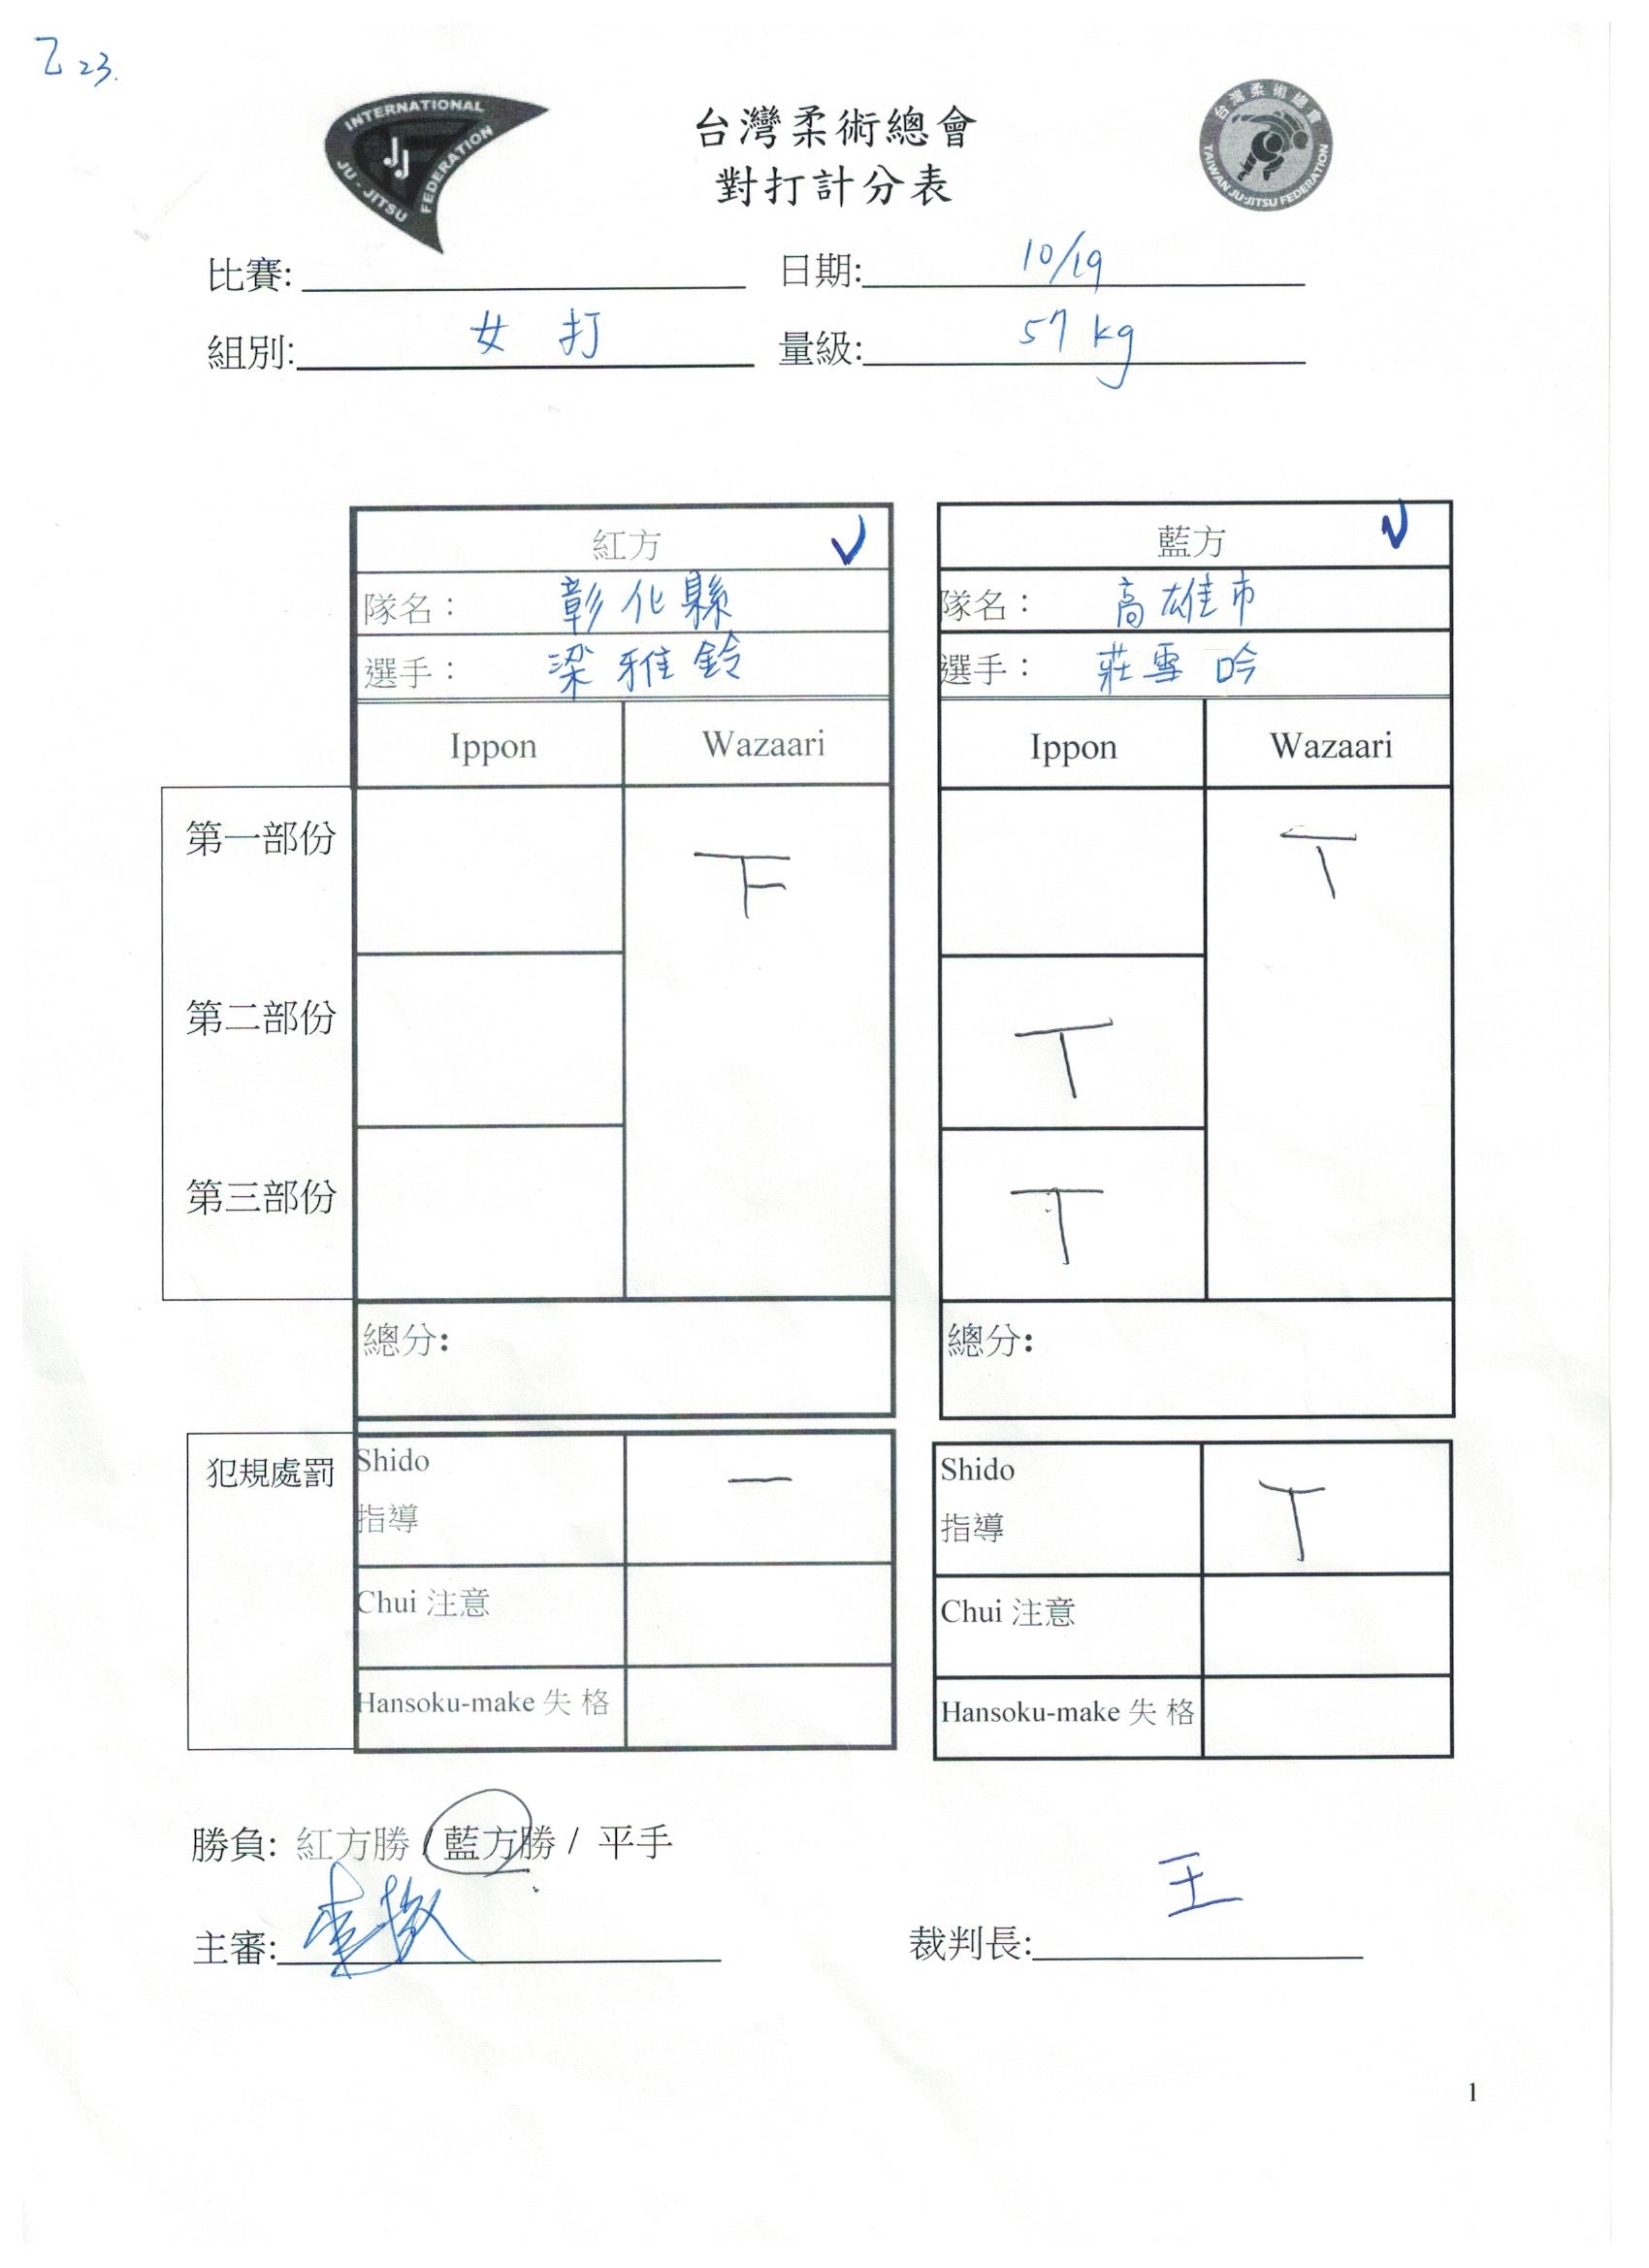 乙 23.
INTERNATIONAL JU-JITSU FEDERATION
JJ
台灣柔術總會
對打計分表
台灣柔術總會 TAIWAN JU-JITSU FEDERATION
比賽: 日期: 10/19
組別: 女 打 量級: 57 kg
紅方 藍方
隊名： 彰化縣 隊名： 高雄市
選手： 梁雅鈴 選手： 莊雪吟
Ippon Wazaari Ippon Wazaari
第一部份
第二部份
第三部份
總分: 總分:
犯規處罰 Shido 指導 Shido 指導
Chui 注意 Chui 注意
Hansoku-make 失 格 Hansoku-make 失 格
勝負: 紅方勝 / 藍方勝 / 平手
主審: 裁判長: 王
1